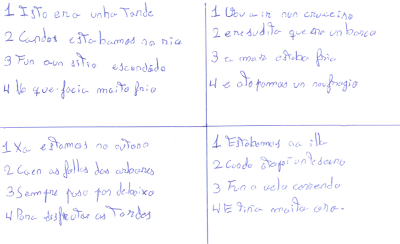 1 Isto era unha tarde
2 Cando estabamos no río
3 Fun a un sitio escondido
4 que facía moito frio
1 Vou a ir nun cruceiro
2 e resulta que era un barco
3 a mar estaba fría
4 e atopamos un naufragio
1 Xa estamos no outono
2 Caen as follas das arbores
3 Sempre paso por debaixo
4 Para disfrutar as Tardes
1 Estabamos na illa
2 Cando atopei un tesouro
3 Fun a velo correndo
4 E tiña moito oro.